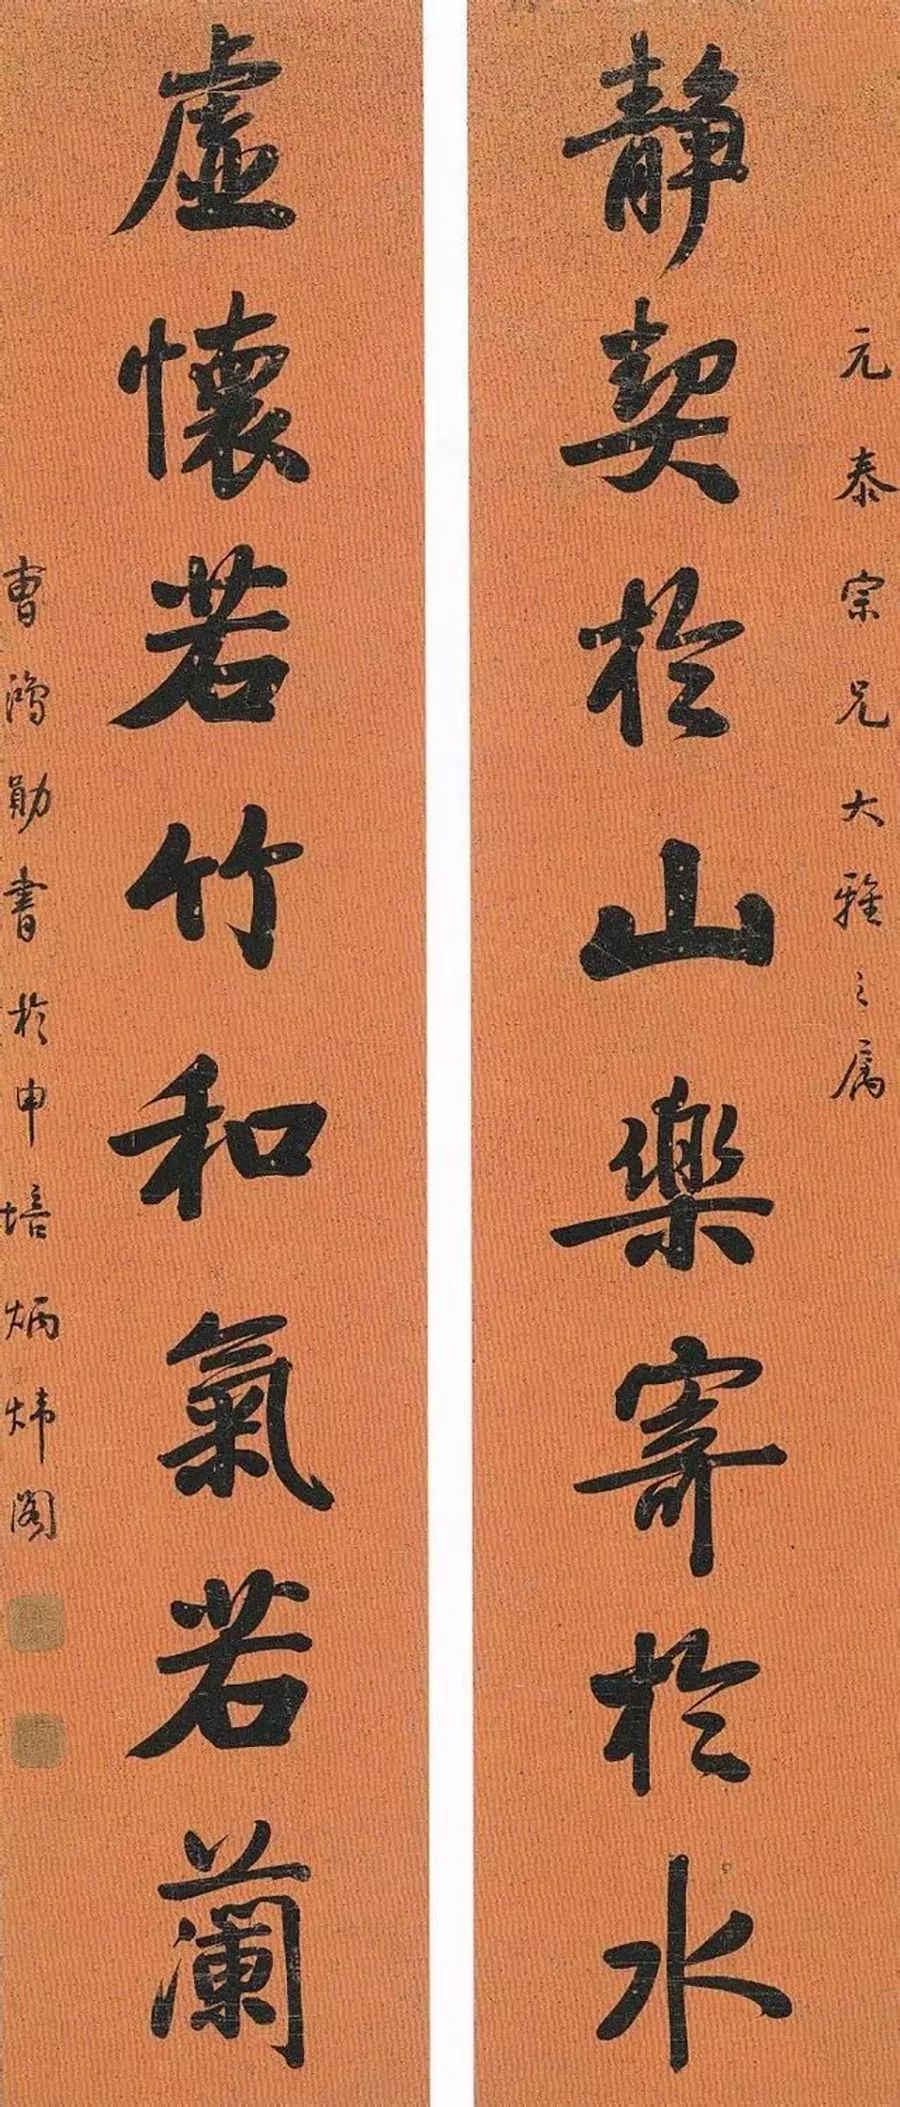 元泰宗兄大雅之属
静契於山樂寄於水
虛懷若竹和氣若蘭
曹鴻勛書於申培炳炜阁